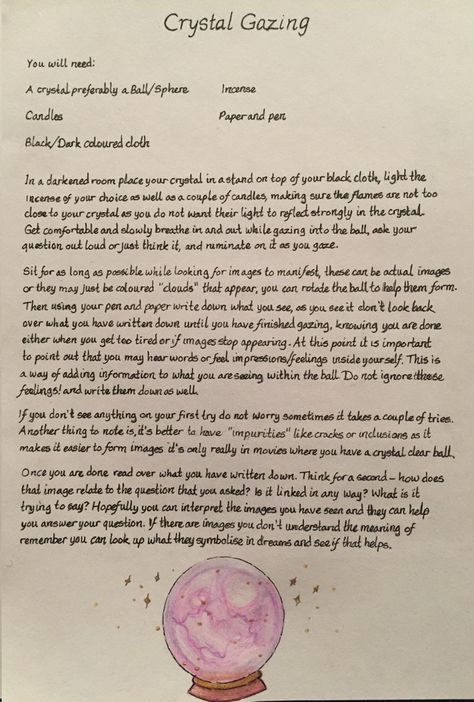 Crystal Gazing
You will need:
A crystal preferably a Ball/Sphere Incense
Candles Paper and pen
Black/Dark coloured cloth
In a darkened room place your crystal in a stand on top of your black cloth, light the
incense of your choice as well as a couple of candles, making sure the flames are not too
close to your crystal as you do not want their light to reflect strongly in the crystal.
Get comfortable and slowly breathe in and out while gazing into the ball, ask your
question out loud or just think it, and ruminate on it as you gaze.
Sit for as long as possible while looking for images to manifest, these can be actual images
or they may just be coloured "clouds" that appear, you can rotate the ball to help them form.
Then using your pen and paper write down what you see, as you see it don't look back
over what you have written down until you have finished gazing, knowing you are done
either when you get too tired or if images stop appearing. At this point it is important
to point out that you may hear words or feel impressions/feelings inside yourself. This is
a way of adding information to what you are seeing within the ball. Do not ignore these
feelings! and write them down as well.
If you don't see anything on your first try do not worry sometimes it takes a couple of tries.
Another thing to note is, it's better to have "impurities" like cracks or inclusions as it
makes it easier to form images it's only really in movies where you have a crystal clear ball.
Once you are done read over what you have written down. Think for a second - how does
that image relate to the question that you asked? Is it linked in any way? What is it
trying to say? Hopefully you can interpret the images you have seen and they can help
you answer your question. If there are images you don't understand the meaning of
remember you can look up what they symbolise in dreams and see if that helps.